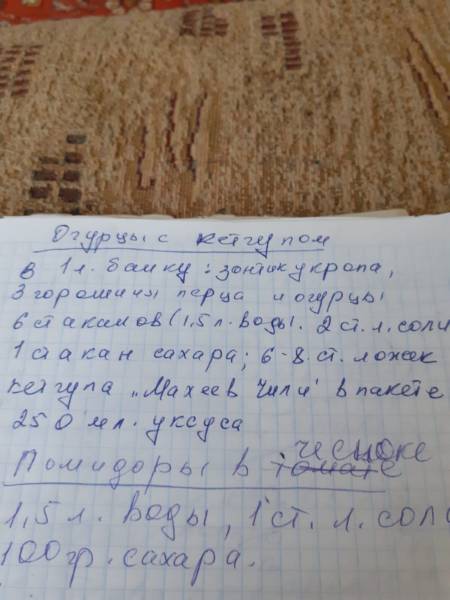 Огурцы с кетчупом
в 1л. банку: зонтик укропа,
3 горошины перца и огурцы
6 стаканов (1,5 л. воды. 2 ст. л. соли
1 стакан сахара; 6-8. ст. ложек
кетчупа „Махеев Чили" в пакете
250 мл. уксуса
Помидоры в томате чесноке
1,5 л. воды, 1 ст. л. соли
100 гр. сахара.